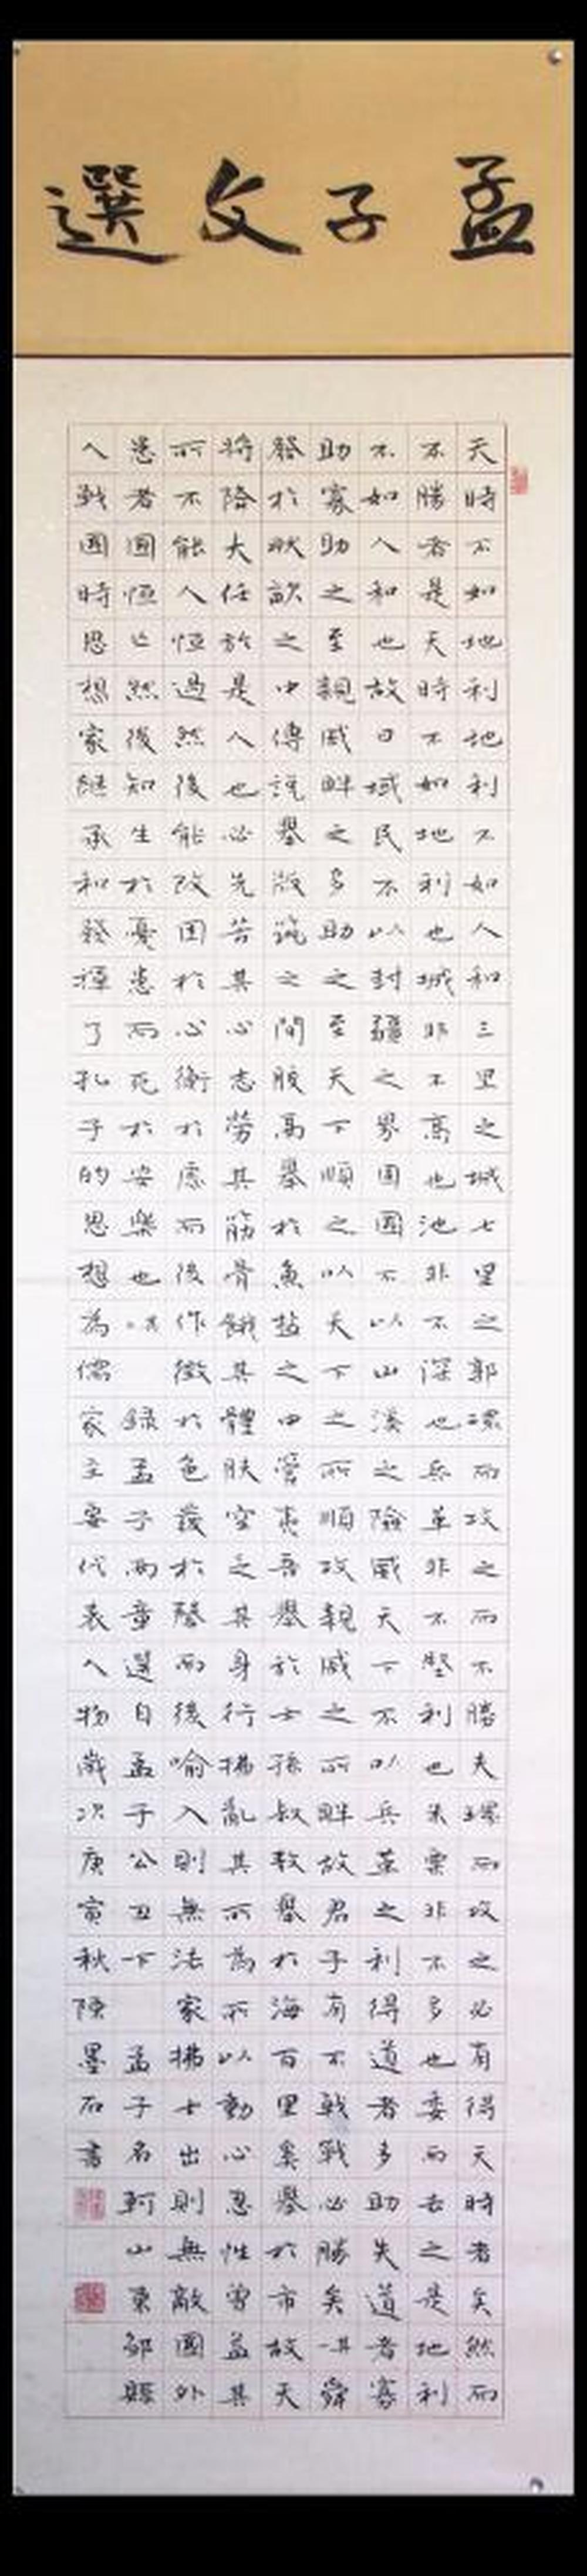 孟子文選
天時不如地利地利不如人和三里之城七里之郭環而攻之而不勝夫環而攻之必有得天時者矣然而
不勝者是天時不如地利也城非不高也池非不深也兵革非不堅利也米粟非不多也委而去之是地利
不如人和也故曰域民不以封疆之界固國不以山溪之險威天下不以兵革之利得道者多助失道者寡
助寡助之至親戚畔之多助之至天下順之以天下之所順攻親戚之所畔故君子有不戰戰必勝矣其一舜
發於畎畝之中傅說舉版築之間膠鬲舉於魚盐之中管夷吾舉於士孫叔敖舉於海百里奚舉於市故天
將降大任於是人也必先苦其心志勞其筋骨餓其體膚空乏其身行拂亂其所為所以動心忍性曾益其
所不能人恒過然後能改困於心衡於慮而後作徵於色發於聲而後喻入則無法家拂士出則無敵國外
患者國恒亡然後知生於憂患而死於安樂也其二 錄孟子兩章選自孟子公丑下 孟子名軻山東鄒縣
人戰國時思想家繼承和發揮了孔子的思想為儒家主要代表人物歲次庚寅秋陳墨石書